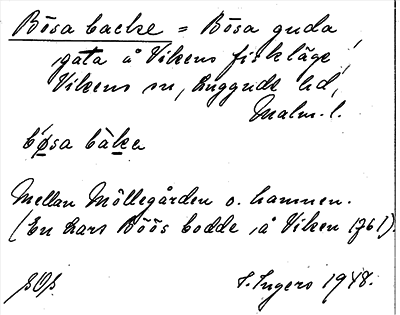 Bösa backe = Bösa guda,
gata å Vikens fiskläge,
Vikens sn, Luggude hd,
Malm. l.
bøsa bàka
Mellan Möllegården o. hamnen.
(En Lars Böös bodde å Viken 1761).
S. Ingers 1948.